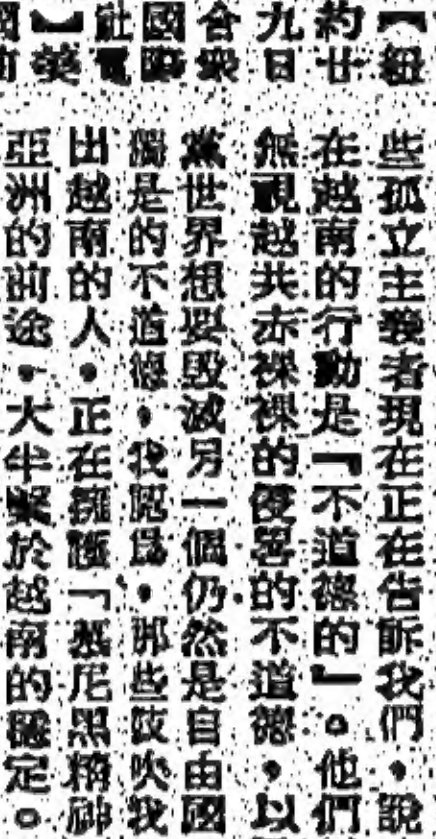 【紐
約廿
九日
合衆
國際
社電
】英
些孤立主義者現在正在告訴我們,說
在越南的行動是「不道德的」。他們
無視越共赤裸裸的侵畧的不道德,以
黨世界想要毀滅另一個仍然是自由國
是的不道德,我認爲,那些鼓吹我
出越南的人,正在擁護「慕尼黑精神
亞洲的前途,大半繫於越南的穩定。